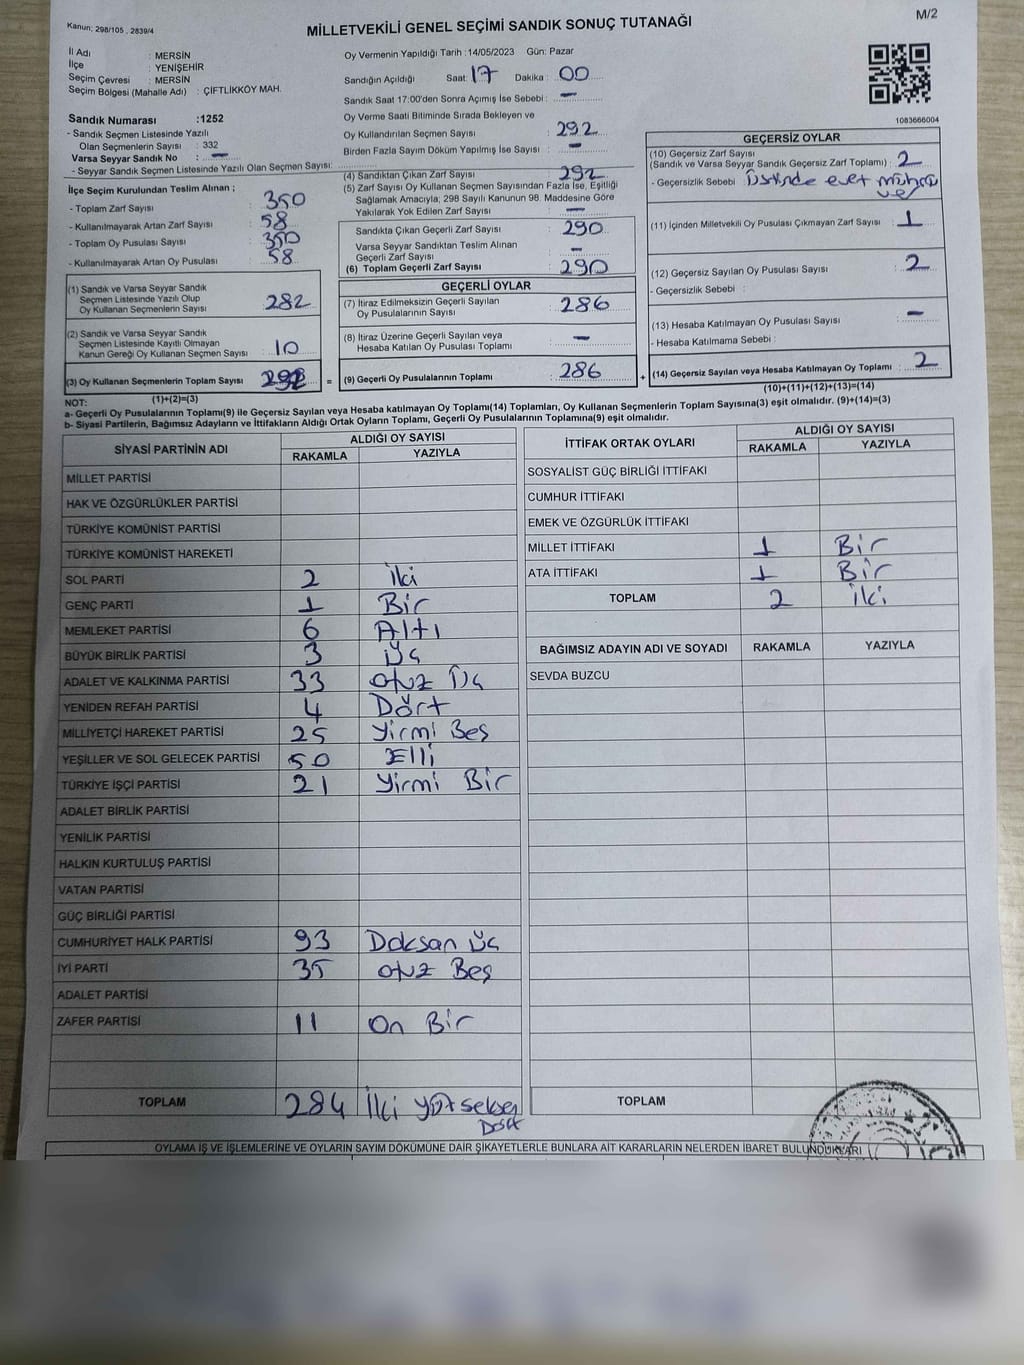 Kanun: 298/105 , 2839/4
MİLLETVEKİLİ GENEL SEÇİMİ SANDIK SONUÇ TUTANAĞI
M/2
İl Adı : MERSİN
İlçe : YENİŞEHİR
Seçim Çevresi : MERSİN
Seçim Bölgesi (Mahalle Adı) : ÇİFTLİKKÖY MAH.
Sandık Numarası :1252
- Sandık Seçmen Listesinde Yazılı
Olan Seçmenlerin Sayısı : 332
Varsa Seyyar Sandık No : -
- Seyyar Sandık Seçmen Listesinde Yazılı Olan Seçmen Sayısı:
Oy Vermenin Yapıldığı Tarih :14/05/2023 Gün: Pazar
Sandığın Açıldığı Saat: 17 Dakika : 00
Sandık Saat 17:00'den Sonra Açımış İse Sebebi : -
Oy Verme Saati Bitiminde Sırada Bekleyen ve
Oy Kullandırılan Seçmen Sayısı : 292
Birden Fazla Sayım Döküm Yapılmış İse Sayısı : -
1083666004
İlçe Seçim Kurulundan Teslim Alınan ;
- Toplam Zarf Sayısı : 350
- Kullanılmayarak Artan Zarf Sayısı : 58
- Toplam Oy Pusulası Sayısı : 350
- Kullanılmayarak Artan Oy Pusulası : 58
(1) Sandık ve Varsa Seyyar Sandık
Seçmen Listesinde Yazılı Olup
Oy Kullanan Seçmenlerin Sayısı : 282
(2) Sandık ve Varsa Seyyar Sandık
Seçmen Listesinde Kayıtlı Olmayan
Kanun Gereği Oy Kullanan Seçmen Sayısı : 10
(3) Oy Kullanan Seçmenlerin Toplam Sayısı : 292 =
(1)+(2)=(3)
(4) Sandıktan Çıkan Zarf Sayısı : 292
(5) Zarf Sayısı Oy Kullanan Seçmen Sayısından Fazla İse, Eşitliği
Sağlamak Amacıyla, 298 Sayılı Kanunun 98. Maddesine Göre
Yakılarak Yok Edilen Zarf Sayısı : -
Sandıkta Çıkan Geçerli Zarf Sayısı : 290
Varsa Seyyar Sandıktan Teslim Alınan
Geçerli Zarf Sayısı : -
(6) Toplam Geçerli Zarf Sayısı : 290
GEÇERLİ OYLAR
(7) İtiraz Edilmeksizin Geçerli Sayılan
Oy Pusulalarının Sayısı : 286
(8) İtiraz Üzerine Geçerli Sayılan veya
Hesaba Katılan Oy Pusulası Toplamı : -
(9) Geçerli Oy Pusulalarının Toplamı : 286 +
GEÇERSİZ OYLAR
(10) Geçersiz Zarf Sayısı
(Sandık ve Varsa Seyyar Sandık Geçersiz Zarf Toplamı) : 2
- Geçersizlik Sebebi : Üstünde evet mührü
(11) İçinden Milletvekili Oy Pusulası Çıkmayan Zarf Sayısı : 1
(12) Geçersiz Sayılan Oy Pusulası Sayısı : 2
- Geçersizlik Sebebi :
(13) Hesaba Katılmayan Oy Pusulası Sayısı : -
- Hesaba Katılmama Sebebi :
(14) Geçersiz Sayılan veya Hesaba Katılmayan Oy Toplamı : 2
(10)+(11)+(12)+(13)=(14)
NOT:
a- Geçerli Oy Pusulalarının Toplamı(9) ile Geçersiz Sayılan veya Hesaba katılmayan Oy Toplamı(14) Toplamları, Oy Kullanan Seçmenlerin Toplam Sayısına(3) eşit olmalıdır. (9)+(14)=(3)
b- Siyasi Partilerin, Bağımsız Adayların ve İttifakların Aldığı Ortak Oyların Toplamı, Geçerli Oy Pusulalarının Toplamına(9) eşit olmalıdır.
SİYASİ PARTİNİN ADI ALDIĞI OY SAYISI
RAKAMLA YAZIYLA
MİLLET PARTİSİ
HAK VE ÖZGÜRLÜKLER PARTİSİ
TÜRKİYE KOMÜNİST PARTİSİ
TÜRKİYE KOMÜNİST HAREKETİ
SOL PARTİ 2 İki
GENÇ PARTİ 1 Bir
MEMLEKET PARTİSİ 6 Altı
BÜYÜK BİRLİK PARTİSİ 3 Üç
ADALET VE KALKINMA PARTİSİ 33 otuz Üç
YENİDEN REFAH PARTİSİ 4 Dört
MİLLİYETÇİ HAREKET PARTİSİ 25 Yirmi Beş
YEŞİLLER VE SOL GELECEK PARTİSİ 50 Elli
TÜRKİYE İŞÇİ PARTİSİ 21 Yirmi Bir
ADALET BİRLİK PARTİSİ
YENİLİK PARTİSİ
HALKIN KURTULUŞ PARTİSİ
VATAN PARTİSİ
GÜÇ BİRLİĞİ PARTİSİ
CUMHURİYET HALK PARTİSİ 93 Doksan üç
İYİ PARTİ 35 otuz Beş
ADALET PARTİSİ
ZAFER PARTİSİ 11 On Bir
TOPLAM 284 İki yüz seksen
Dört
İTTİFAK ORTAK OYLARI ALDIĞI OY SAYISI
RAKAMLA YAZIYLA
SOSYALİST GÜÇ BİRLİĞİ İTTİFAKI
CUMHUR İTTİFAKI
EMEK VE ÖZGÜRLÜK İTTİFAKI
MİLLET İTTİFAKI 1 Bir
ATA İTTİFAKI 1 Bir
TOPLAM 2 İki
BAĞIMSIZ ADAYIN ADI VE SOYADI RAKAMLA YAZIYLA
SEVDA BUZCU
TOPLAM
OYLAMA İŞ VE İŞLEMLERİNE VE OYLARIN SAYIM DÖKÜMÜNE DAİR ŞİKAYETLERLE BUNLARA AİT KARARLARIN NELERDEN İBARET BULUNDUKLARI